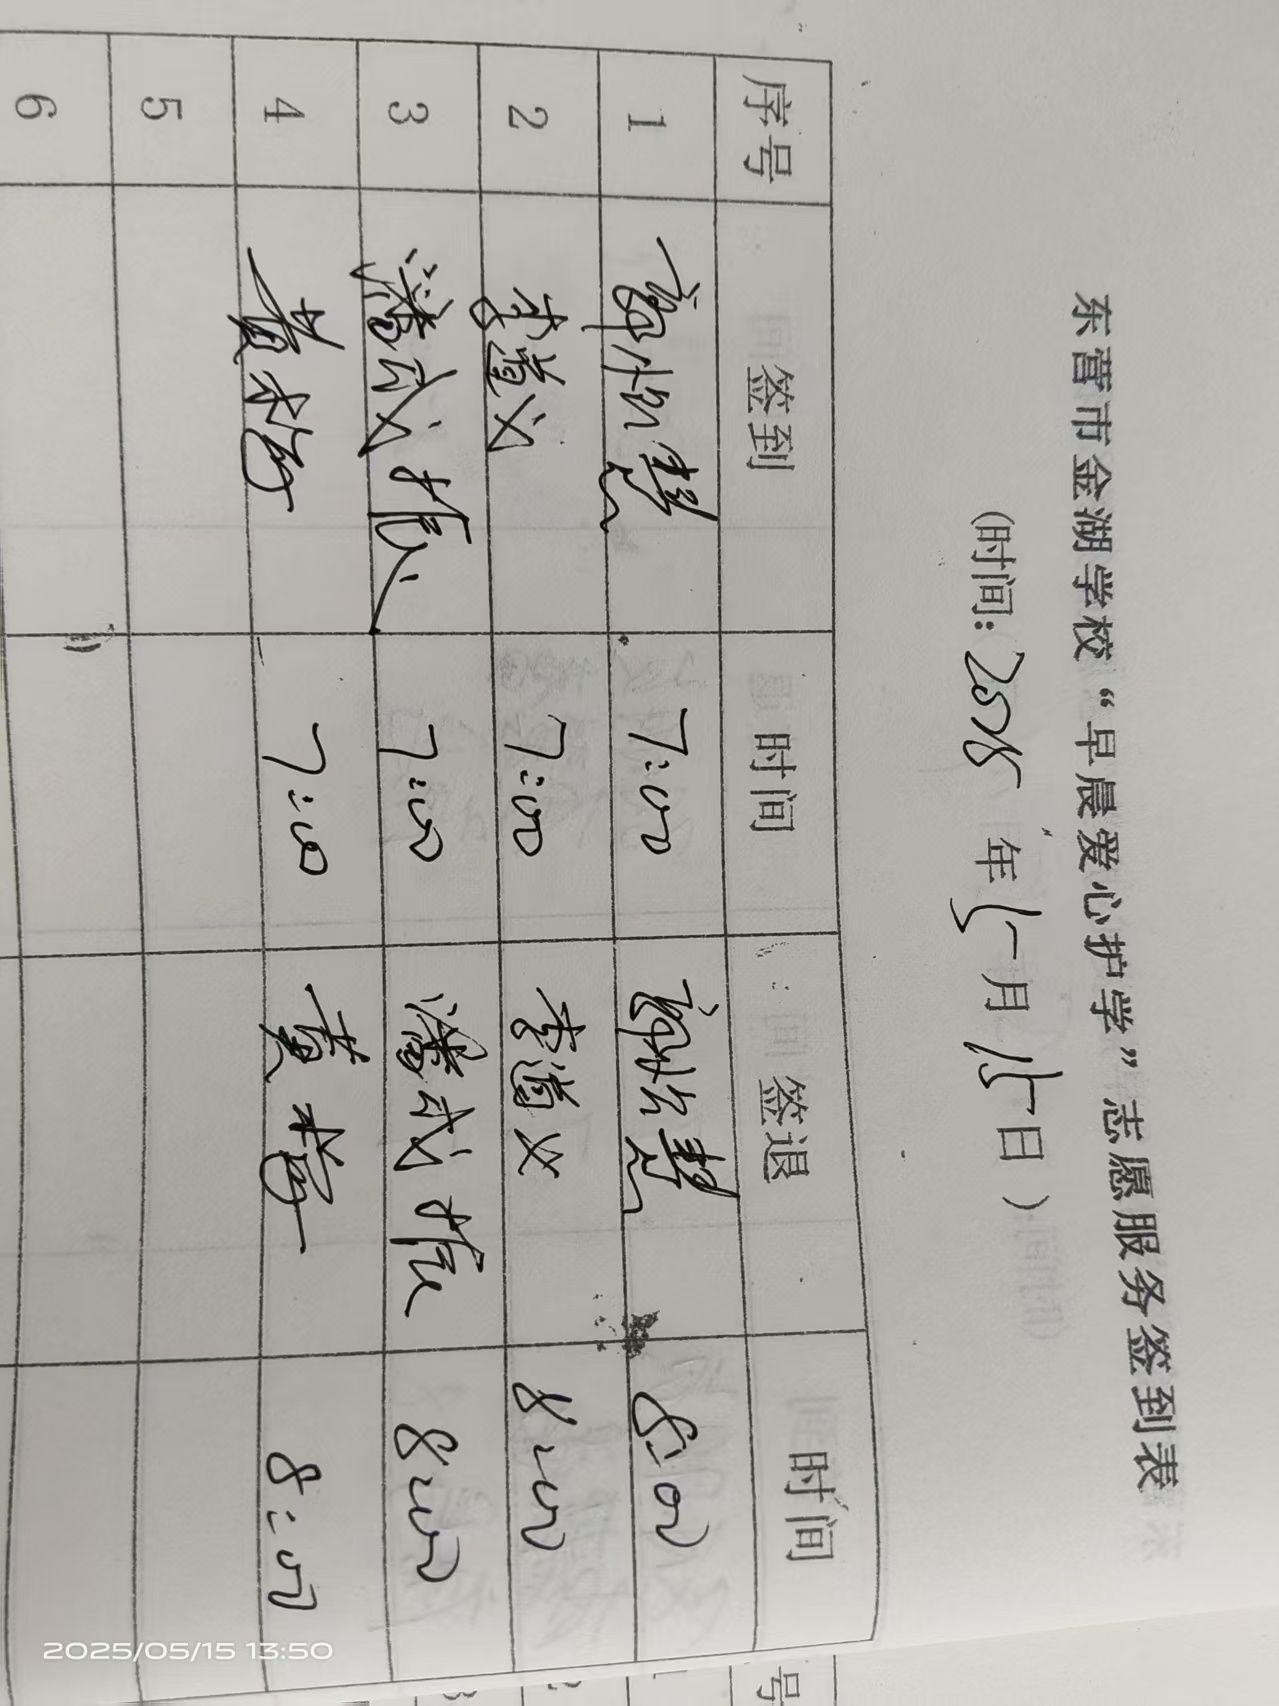 东营市金湖学校“早晨爱心护学”志愿服务签到表
(时间:2025年5月15日)
序号 签到 时间 签退 时间
1 郭怡慧 7:00 郭怡慧 8:00
2 李道义 7:00 李道义 8:00
3 潘武振 7:00 潘武振 8:00
4 黄梅 7:00 黄梅 8:00
5
6
2025/05/15 13:50